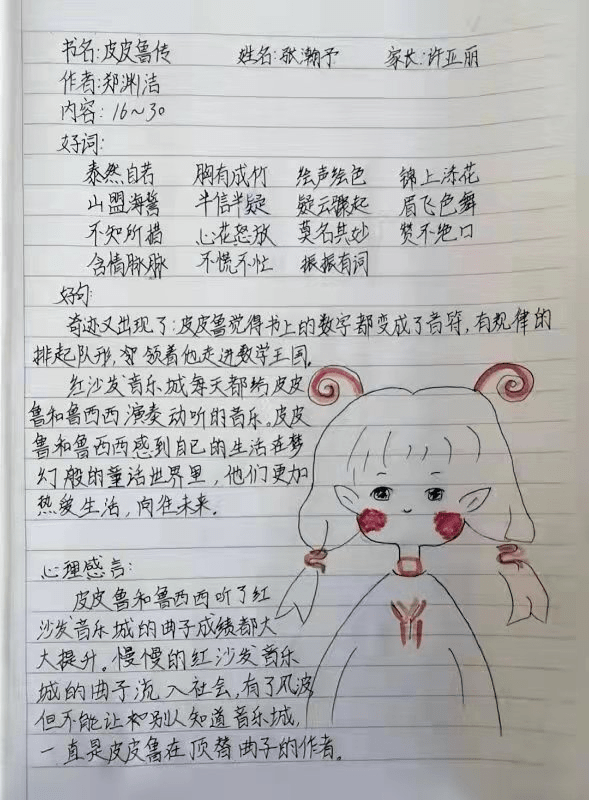 书名:皮皮鲁传 姓名:张瀚予 家长:许亚丽
作者:郑渊洁
内容:16～30
好词:
泰然自若 胸有成竹 绘声绘色 锦上添花
山盟海誓 半信半疑 疑云骤起 眉飞色舞
不知所措 心花怒放 莫名其妙 赞不绝口
含情脉脉 不慌不忙 振振有词
好句:
奇迹又出现了:皮皮鲁觉得书上的数字都变成了音符,有规律的
排起队形, 领着他走进数学王国。
红沙发音乐城每天都给皮皮
鲁和鲁西西演奏动听的音乐。皮皮
鲁和鲁西西感到自己的生活在梦
幻般的童话世界里,他们更加
热爱生活,向往未来。
心理感言:
皮皮鲁和鲁西西听了红
沙发音乐城的曲子成绩都大
大提升。慢慢的红沙发音乐
城的曲子流入社会,有了风波
但不能让和别人知道音乐城,
一直是皮皮鲁在顶替曲子的作者。